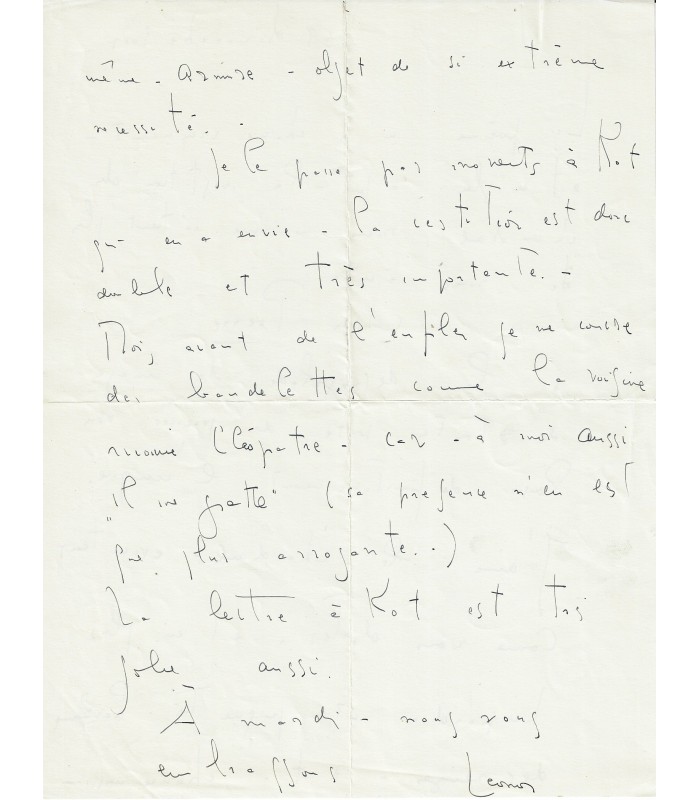 même - armure - objet de si extrême
necessité. -
Je le passe par moments à Kot
qui en a envie - la restitution est donc
double et très importante. -
Mois avant de l'enfiler je me couvre
des bandelettes comme la voisine
momie Cléopatre - car - à moi aussi
"il me gratte" (sa presence n'en est
que plus arrogante..)
La lettre à Kot est très
jolie aussi.
À mardi - nous vous
embrassons Leonor